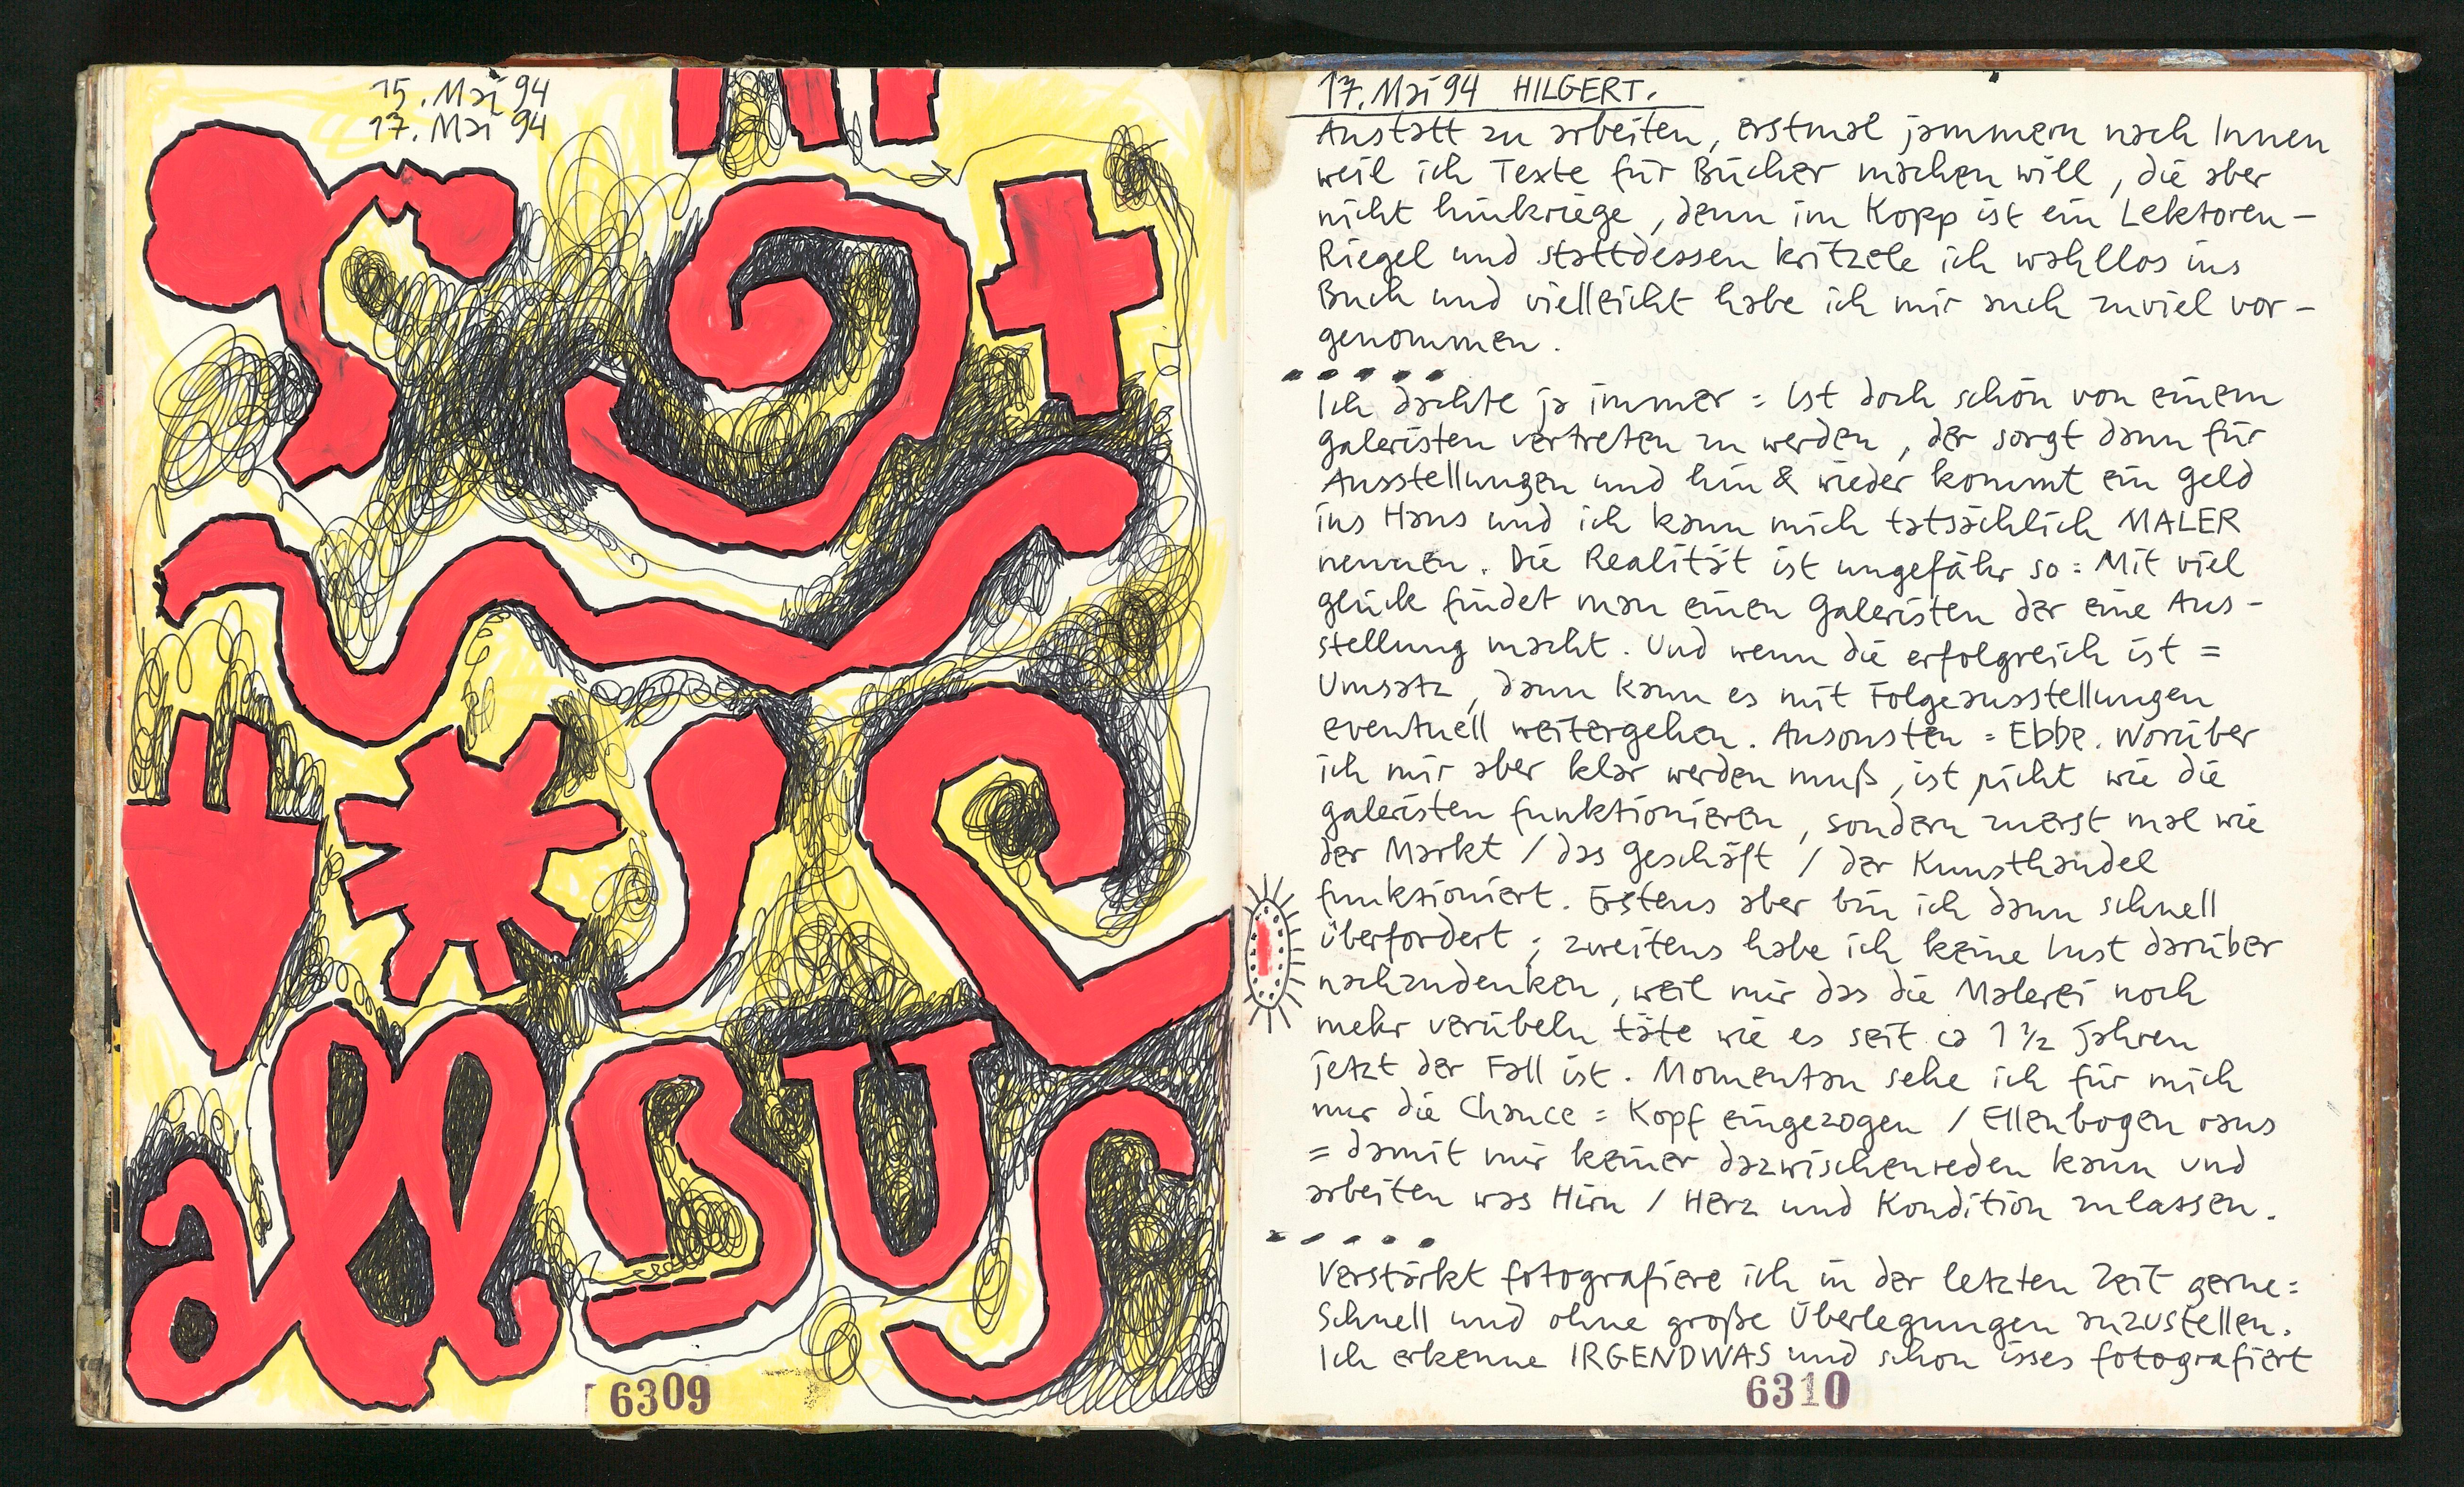 15. Mai 94
17. Mai 94
all BUS
6309
17. Mai 94 HILGERT.
Anstatt zu arbeiten, erstmal jammern nach Innen
weil ich Texte für Bücher machen will, die aber
nicht hinkriege, denn im Kopp ist ein Lektoren-
Riegel und stattdessen kritzele ich wahllos ins
Buch und vielleicht habe ich mir auch zuviel vor-
genommen.
Ich dachte ja immer = Ist doch schön von einem
Galeristen vertreten zu werden, der sorgt dann für
Ausstellungen und hin & wieder kommt ein Geld
ins Haus und ich kann mich tatsächlich MALER
nennen. Die Realität ist ungefähr so = Mit viel
Glück findet man einen Galeristen der eine Aus-
stellung macht. Und wenn die erfolgreich ist =
Umsatz, dann kann es mit Folgeausstellungen
eventuell weitergehen. Ansonsten = Ebbe. Worüber
ich mir aber klar werden muß, ist nicht wie die
Galeristen funktionieren, sondern zuerst mal wie
der Markt / das Geschäft / der Kunsthandel
funktioniert. Erstens aber bin ich dann schnell
überfordert; zweitens habe ich keine Lust darüber
nachzudenken, weil mir das die Malerei noch
mehr verübeln täte wie es seit ca 1 1/2 Jahren
jetzt der Fall ist. Momentan sehe ich für mich
nur die Chance = Kopf eingezogen / Ellenbogen raus
= damit mir keiner dazwischenreden kann und
arbeiten was Hirn / Herz und Kondition zulassen.
Verstärkt fotografiere ich in der letzten Zeit gerne =
Schnell und ohne große Überlegungen anzustellen.
Ich erkenne IRGENDWAS und schon isses fotografiert
6310